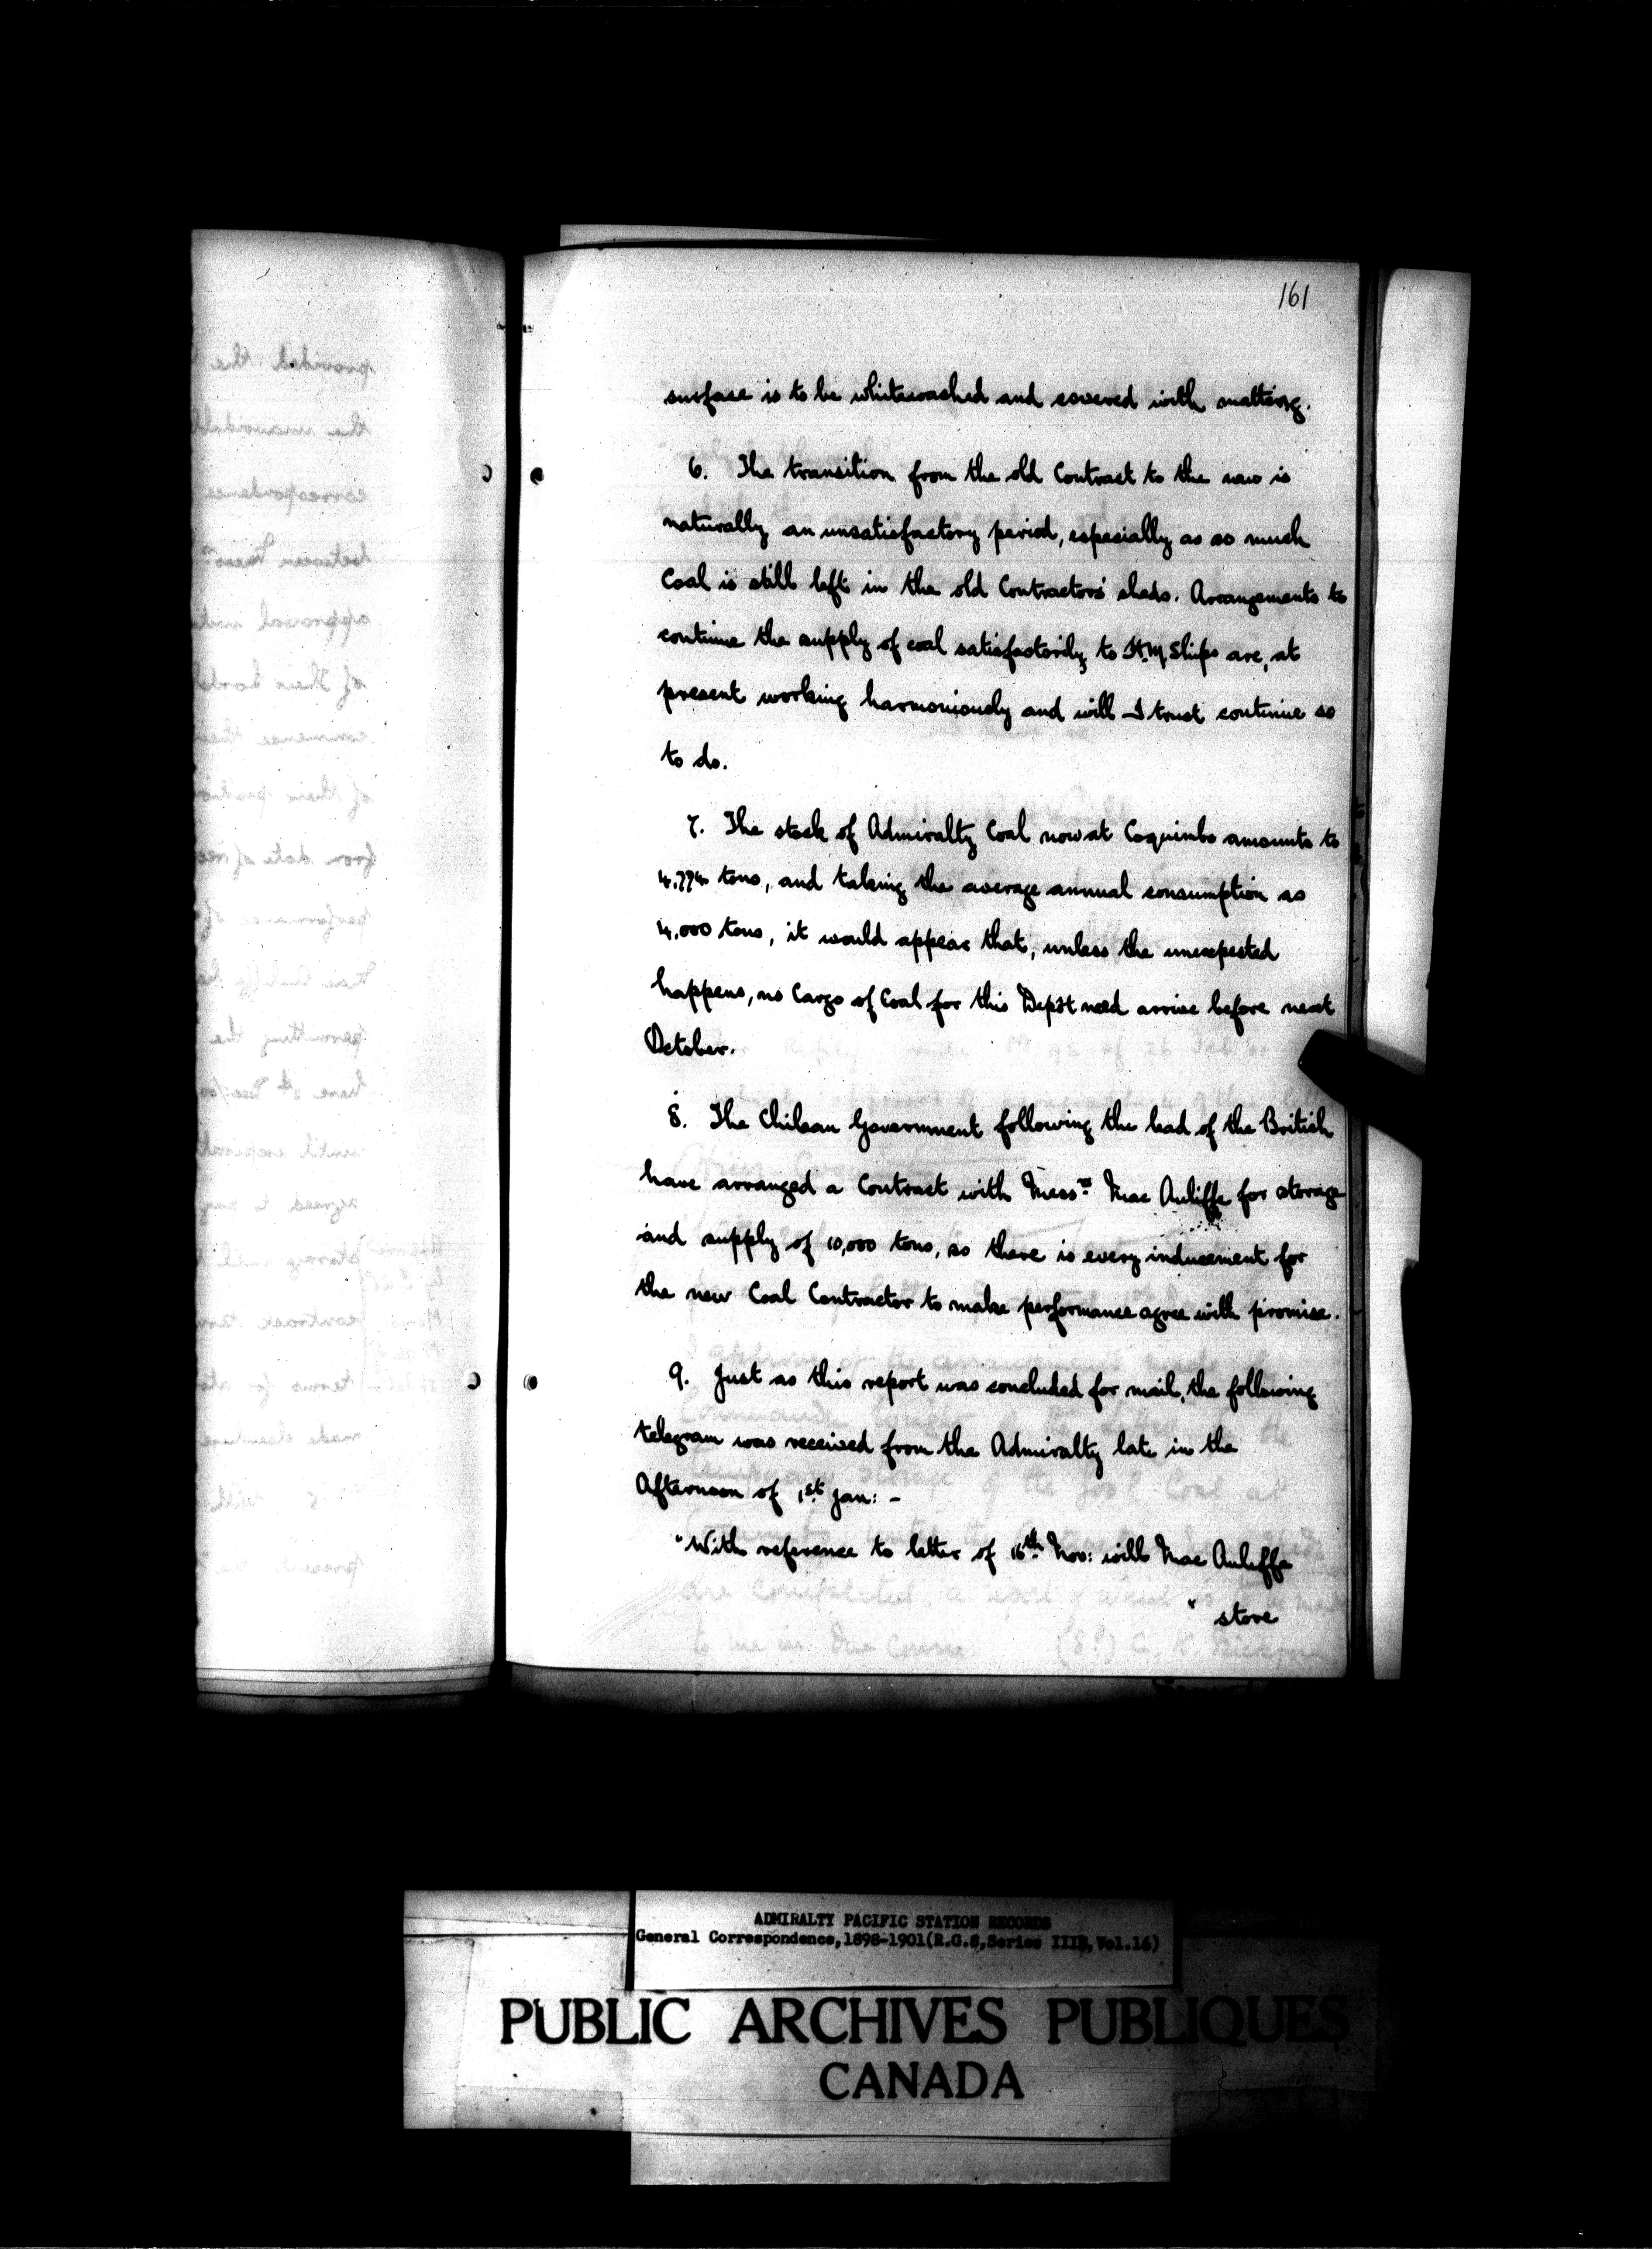 161
surface is to be whitewashed and covered with matting.
6. The transition from the old Contract to the new is
naturally an unsatisfactory period, especially as so much
Coal is still left in the old Contractors' sheds. Arrangements to
continue the supply of coal satisfactorily to H.M. Ships are, at
present working harmoniously and will I trust continue so
to do.
7. The stock of Admiralty Coal now at Coquimbo amounts to
tons, and taking the average annual consumption as
4,000 tons, it would appear that, unless the unexpected
happens, no Cargo of Coal for this Depôt need arrive before next
October.
8. The Chilean Government following the lead of the British
have arranged a Contract with Messrs. Mac Auliffe for storage
and supply of 10,000 tons, so there is every inducement for
the new Coal Contractor to make performance agree with promise.
9. Just as this report was concluded for mail, the following
telegram was received from the Admiralty late in the
Afternoon of 1st Jan: -
"With reference to letter of 16th Nov: will Mac Auliffe
" store
ADMIRALTY PACIFIC STATION RECORDS
General Correspondence, 1898-1901 (R.G.8, Series IIIB, Vol.16)
PUBLIC ARCHIVES PUBLIQUES
CANADA